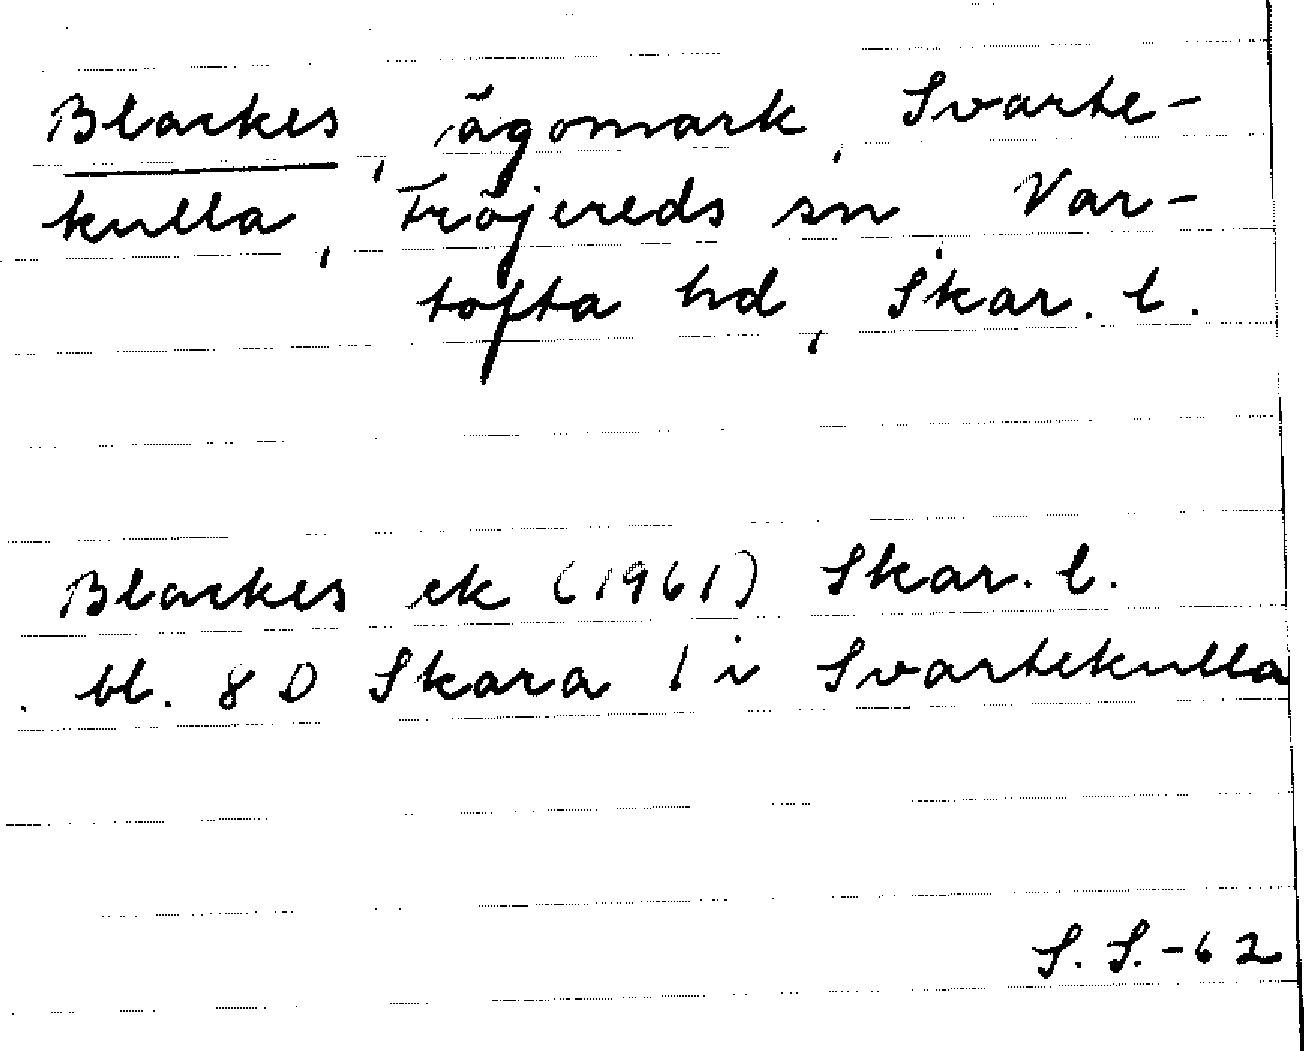 Blackes, ägomark, Svarte-
kulla, Fröjereds sn, Var-
tofta hd, Skar. l.
Blackes ek (1961) Skar. l.
bl. 8 D Skara 1 i Svartekulla
S. S. -62